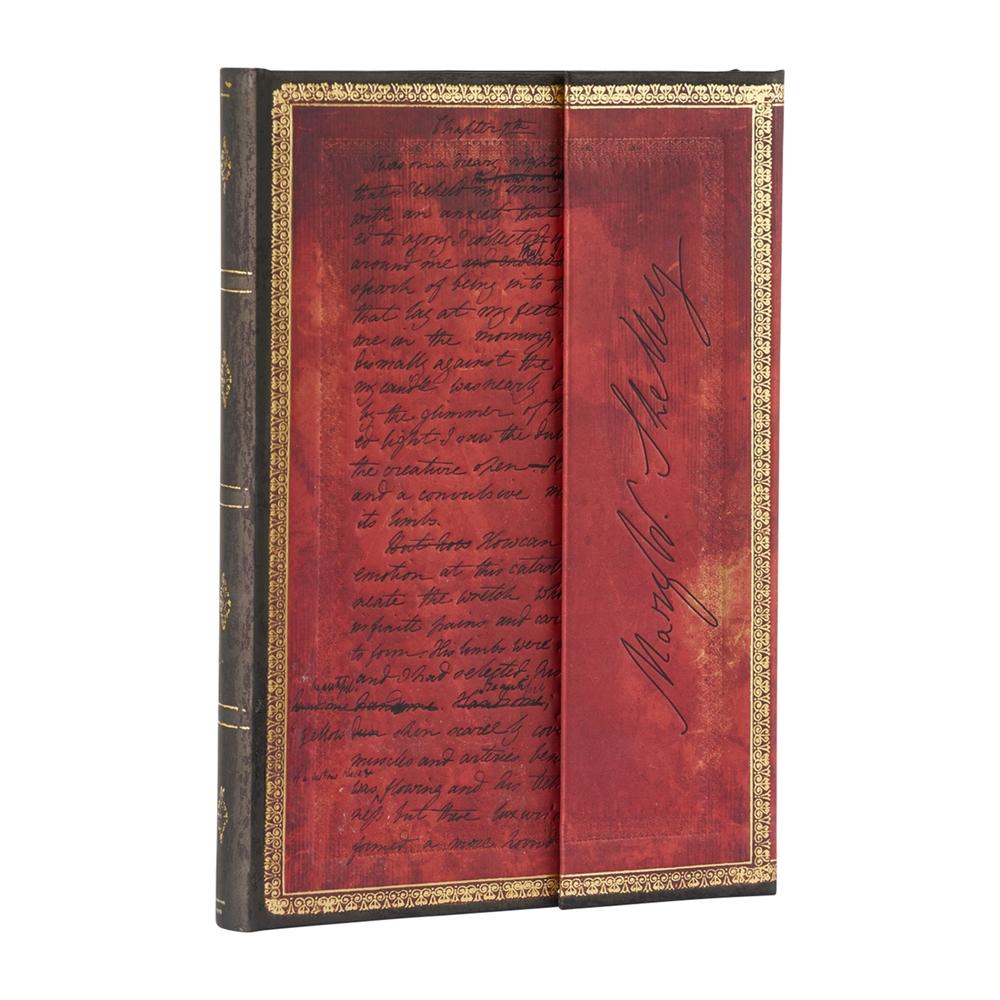 Chapter 7th
It was on a dreary night
that I beheld my man
with an anxiety that
ed to agony I collected
around me and endeav
that
spark of being into
that lay at my feet
one in the morning,
dismally against the
my candle was nearly
by the glimmer of
ed light I saw the dul
the creature open
and a convulsive m
its limbs.
But how How can
emotion at this catast
neate the wretch who
infinite pains and car
to form. His limbs were
and I had selected his
beautiful
handsome. Handsome,
yellow skin scarcely cove
muscles and arteries ben
was flowing and his teeth
ness but these luxuri
formed a more horrid
Mary W. Shelley